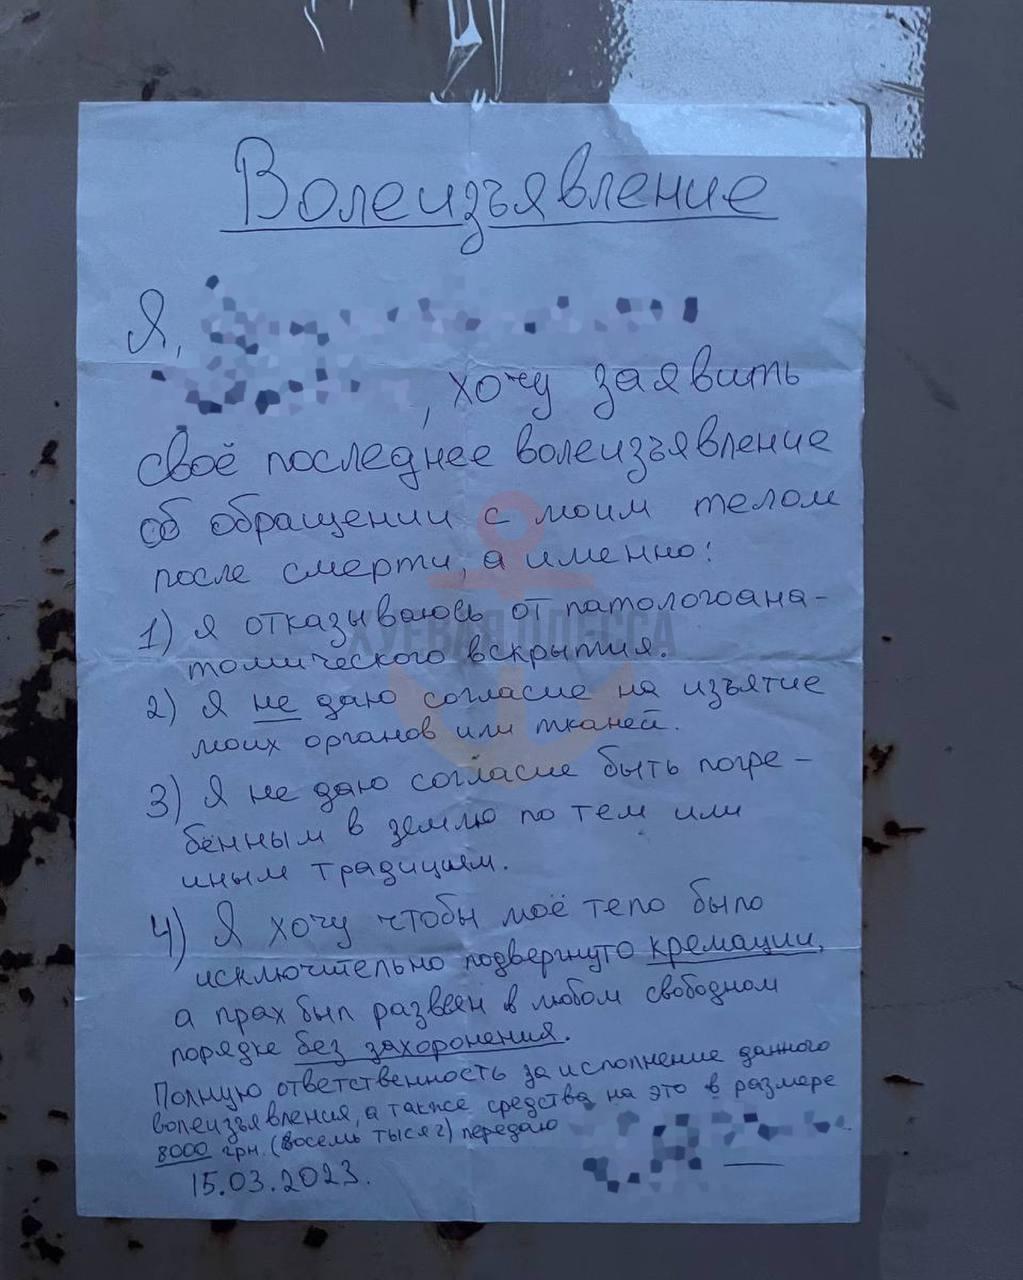 Волеизъявление
Я,
, хочу заявить
своё последнее волеизъявление
об обращении с моим телом
после смерти, а именно:
1) Я отказываюсь от патологоана-
томического вскрытия.
ХУЕВАЯ ОДЕССА
2) Я не даю согласие на изъятие
моих органов или тканей.
3) Я не даю согласие быть погре-
бённым в землю по тем или
иным традициям.
4) Я хочу чтобы моё тело было
исключительно подвергнуто кремации,
а прах был развеян в любом свободном
порядке без захоронения.
Полную ответственность за исполнение данного
волеизъявления, а также средства на это в размере
8000 грн. (восемь тысяч) передаю
15.03.2023.